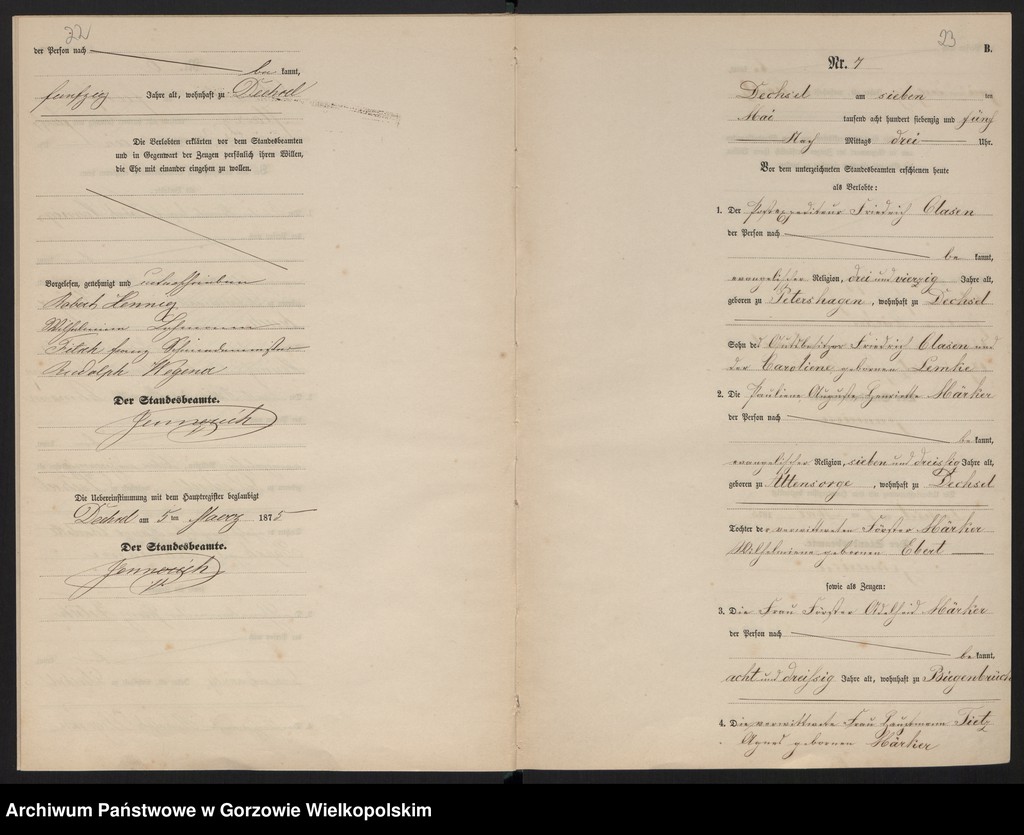 22
der Person nach
be kannt,
funfzig Jahre alt, wohnhaft zu Dechsel
Die Verlobten erklärten vor dem Standesbeamten
und in Gegenwart der Zeugen persönlich ihren Willen,
die Ehe mit einander eingehen zu wollen.
Vorgelesen, genehmigt und unterschrieben
Robert Hennig
Wilhelmine
Franz
Rudolph Wegener
Der Standesbeamte.
Die Uebereinstimmung mit dem Hauptregister beglaubigt
Dechsel am 5 ten Maerz 1875
Der Standesbeamte.
23
B.
Nr. 7
Dechsel am sieben ten
Mai tausend acht hundert siebenzig und fünf
Nach Mittags drei Uhr.
Vor dem unterzeichneten Standesbeamten erschienen heute
als Verlobte:
1. Der Postexpediteur Friedrich Clasen
der Person nach
be kannt,
evangelischer Religion, drei und vierzig Jahre alt,
geboren zu Petershagen, wohnhaft zu Dechsel
Sohn des Gutsbesitzer Friedrich Clasen und
der Caroliene gebornen Lemke
2. Die Pauliene Auguste Henriette Märker
der Person nach
be kannt,
evangelischer Religion, sieben und dreissig Jahre alt,
geboren zu Altensorge, wohnhaft zu Dechsel
Tochter der verwittweten Förster Märker
Wilhelmiene gebornen Ebert
sowie als Zeugen:
3. Die Frau Förster Adelheid Märker
der Person nach
be kannt,
acht und dreissig Jahre alt, wohnhaft zu Bürgenbruch
4. Die verwittwete Frau Hauptmann Tietz
Agnes gebornen Märker
Archiwum Państwowe w Gorzowie Wielkopolskim